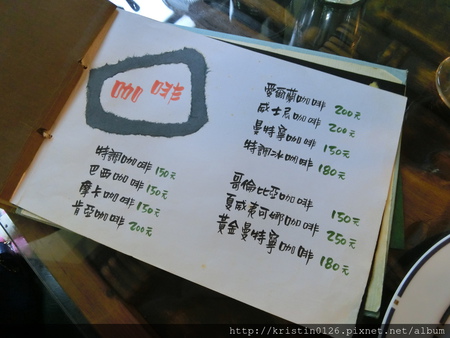 咖啡
特調咖啡 150元
巴西咖啡 150元
摩卡咖啡 150元
肯亞咖啡 200元
愛爾蘭咖啡 200元
威士忌咖啡 200元
曼特寧咖啡 150元
特調冰咖啡 180元
哥倫比亞咖啡 150元
夏威夷可娜咖啡 250元
黃金曼特寧咖啡 180元
http://kristin0126.pixnet.net/album